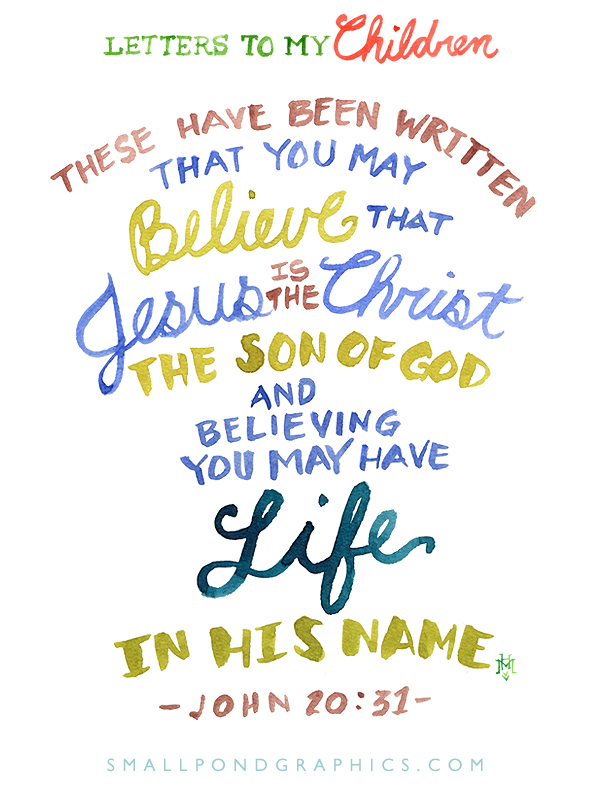 LETTERS TO MY Children
THESE HAVE BEEN WRITTEN
THAT YOU MAY
Believe THAT
Jesus IS THE Christ
THE SON OF GOD
AND
BELIEVING
YOU MAY HAVE
Life
IN HIS NAME
-JOHN 20:31-
SMALLPONDGRAPHICS.COM